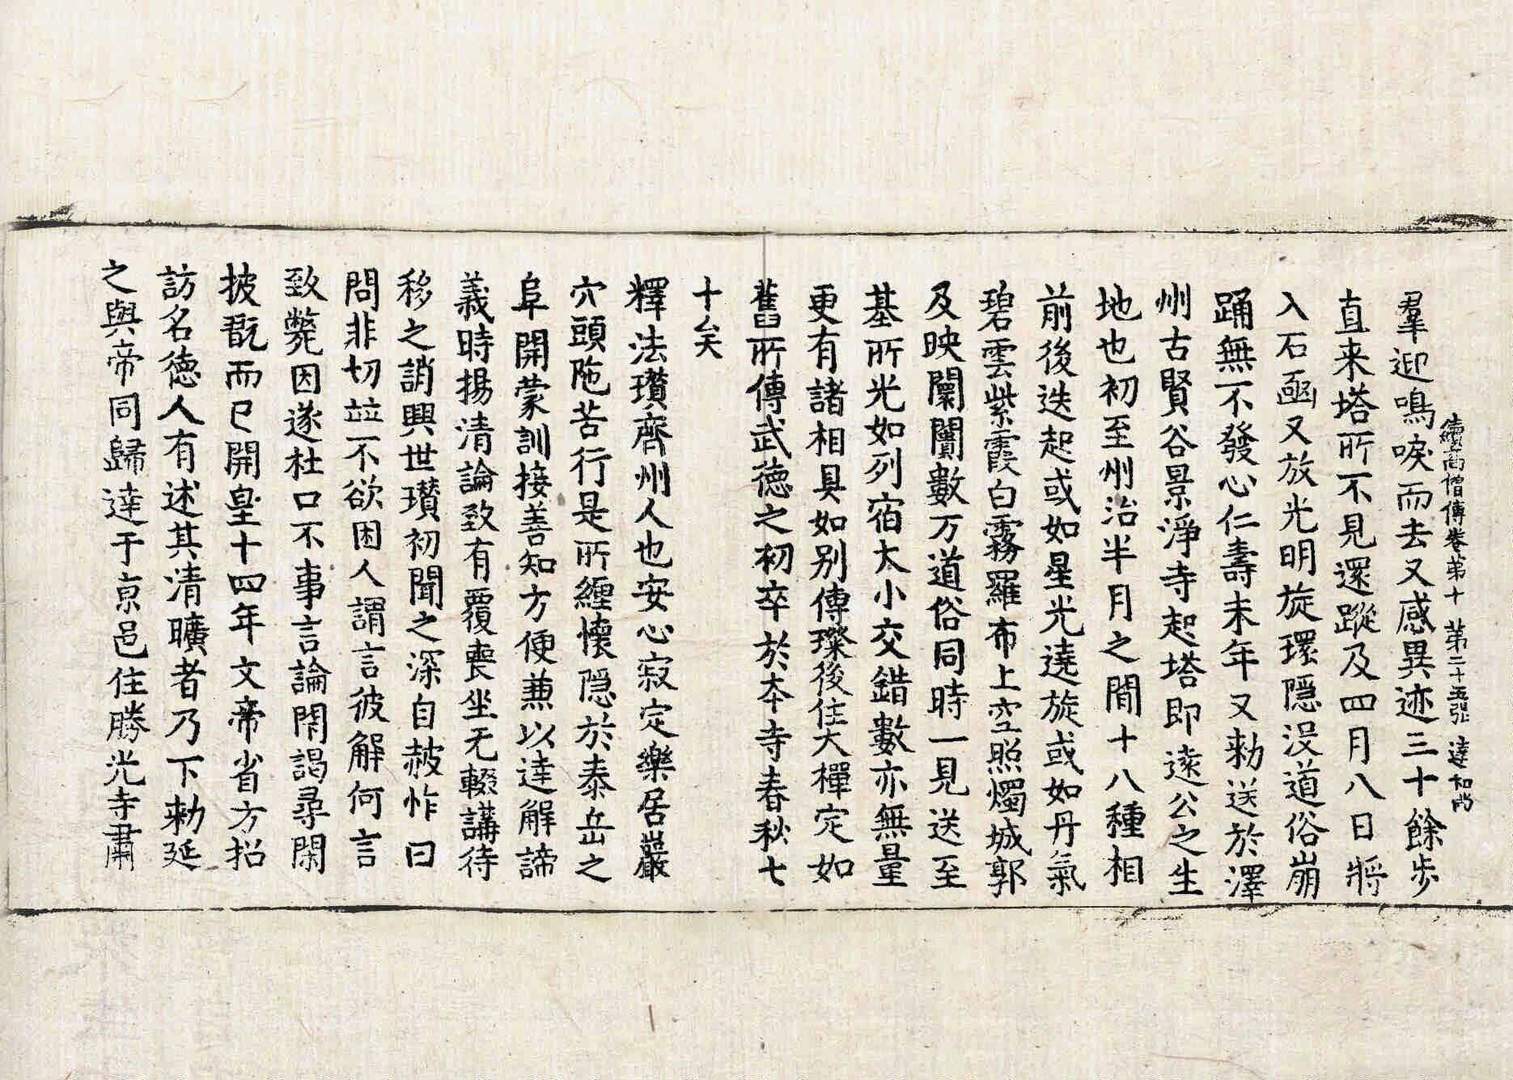 續高僧傳卷第十 第二十五張 達和尚
羣迎鳴唳而去又感異迹三十餘步
直来塔所不見還蹤及四月八日將
入石函又放光明旋環隱没道俗崩
踊無不發心仁壽末年又勑送於澤
州古賢谷景淨寺起塔即遠公之生
地也初至州治半月之間十八種相
前後迭起或如星光遶旋或如丹氣
碧雲紫霞白霧羅布上空照燭城郭
及映闤闠數万道俗同時一見送至
基所光如列宿大小交錯數亦無量
更有諸相具如別傳璨後住大禪定如
舊所傳武德之初卒於夲寺春秋七
十矣
釋法瓚齊州人也安心寂定樂居巖
穴頭陁苦行是所纏懷隱於泰岳之
阜開蒙訓接善知方便兼以達解諦
義時揚清論致有覆喪坐无輟講待
移之誚興世瓚初聞之深自赧怍曰
問非切並不欲困人謂言彼解何言
致斃因遂杜口不事言論閇謁尋閑
披翫而已開皇十四年文帝省方招
訪名德人有述其清曠者乃下勑延
之與帝同歸達于京邑住勝光寺肅